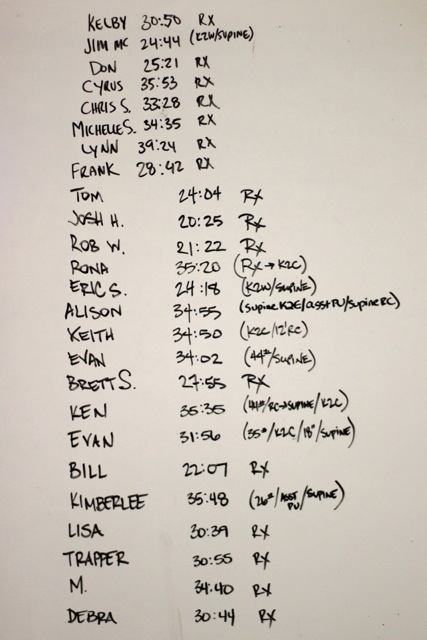 KELBY 30:50 RX
JIM MC 24:44 (K2W/SUPINE)
DON 25:21 RX
CYRUS 35:53 RX
CHRIS S. 33:28 RX
MICHELLE S. 34:35 RX
LYNN 39:24 RX
FRANK 28:42 RX
TOM 24:04 RX
JOSH H. 20:25 RX
ROB W. 21:22 RX
RONA 35:20 (RX→K2C)
ERIC S. 24:18 (K2W/SUPINE)
ALISON 34:55 (SUPINE K2E/ASST PU/SUPINE RC)
KEITH 34:50 (K2C/12'RC)
EVAN 34:02 (44#/SUPINE)
BRETT S. 27:55 RX
KEN 35:35 (44#/RC→SUPINE/K2C)
EVAN 31:56 (35#/K2C/18"/SUPINE)
BILL 22:07 RX
KIMBERLEE 35:48 (26#/ASST PU/SUPINE)
LISA 30:39 RX
TRAPPER 30:55 RX
M. 34:40 RX
DEBRA 30:44 RX